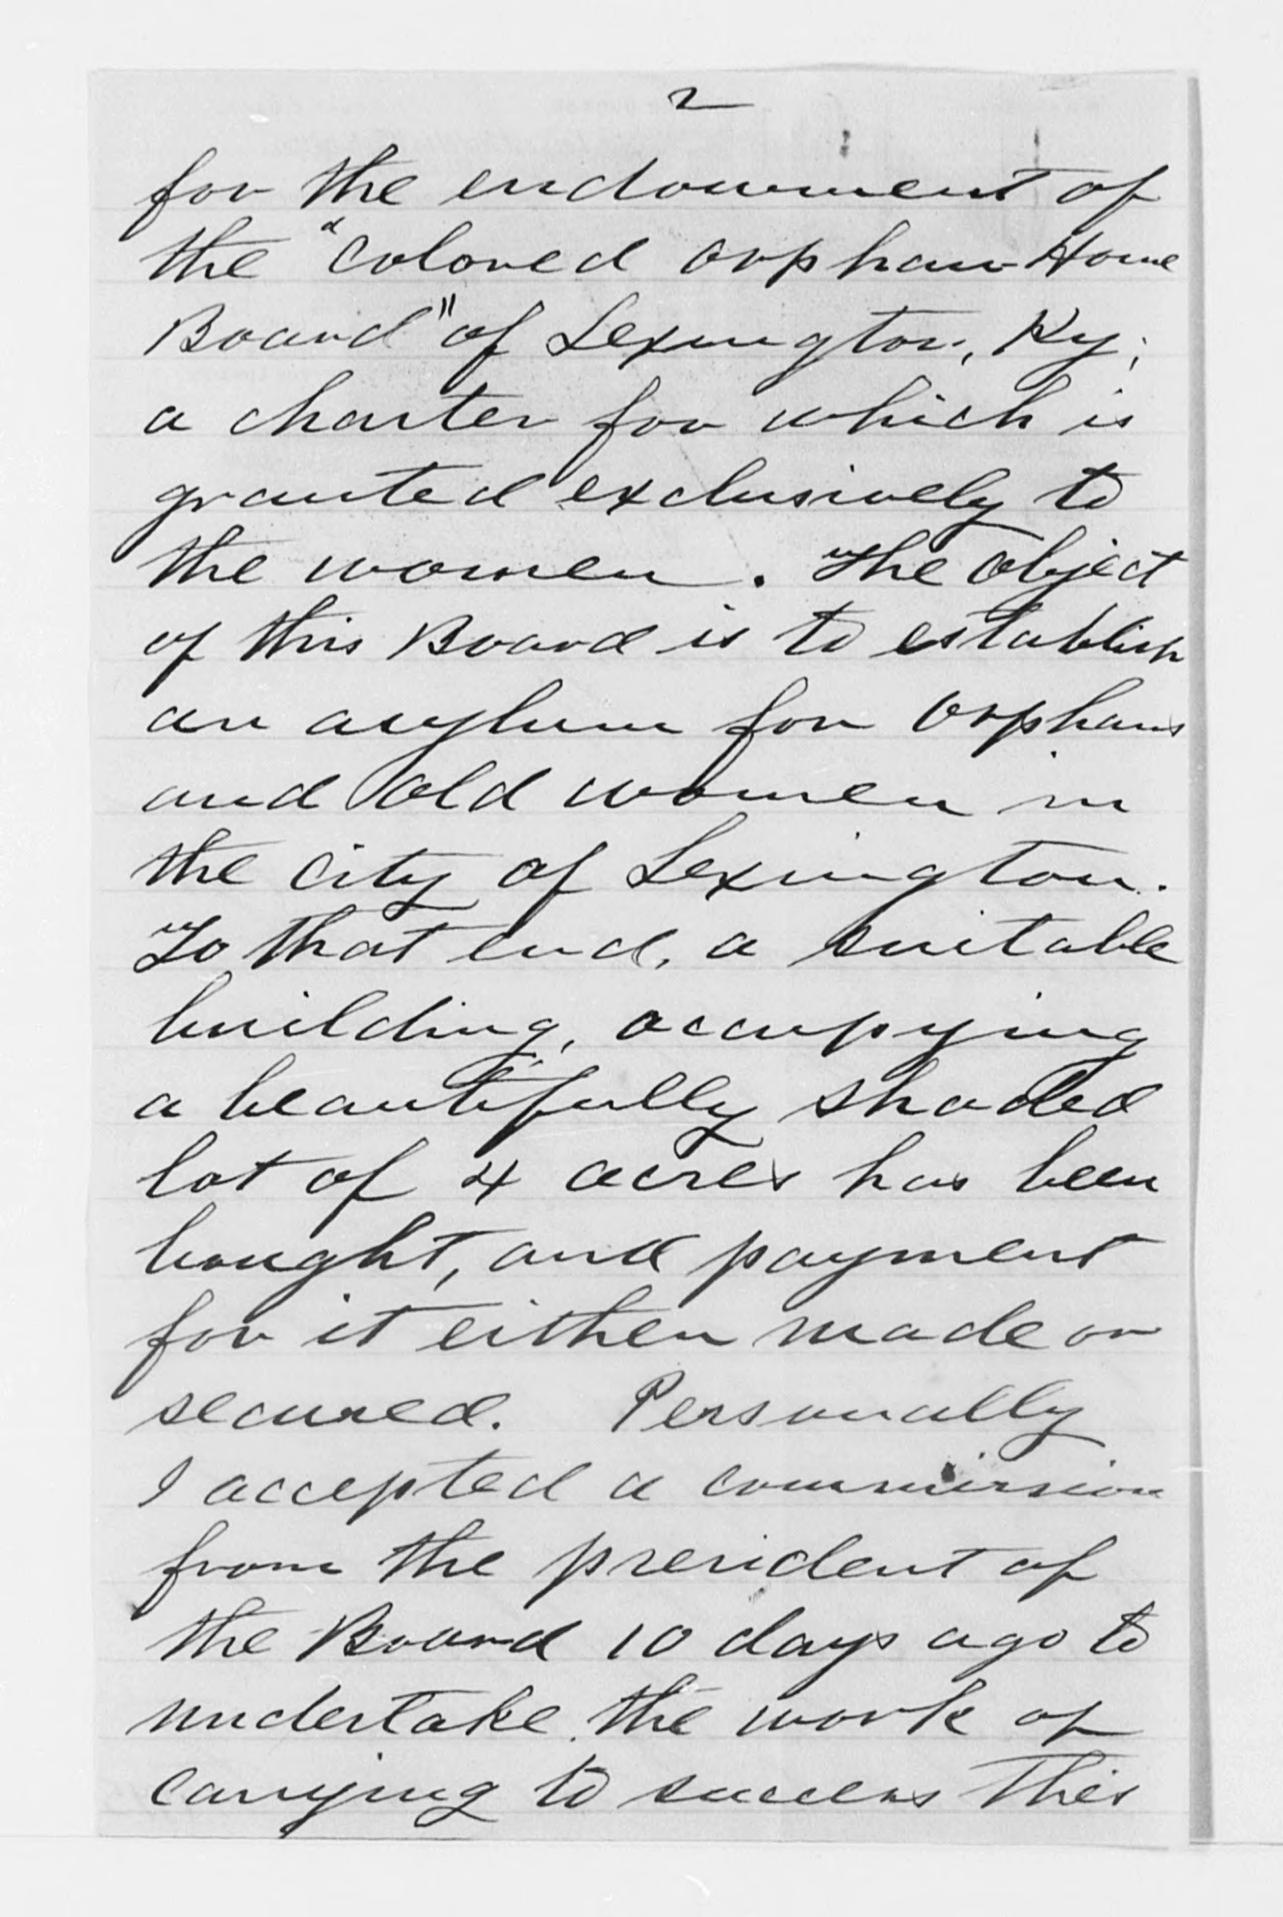 2
for the endowment of
the "Colored Orphan Home
Board" of Lexington, Ky;
a charter for which is
granted exclusively to
the women. The object
of this Board is to establish
an asylum for Orphans
and old women in
the city of Lexington.
To that end, a suitable
building, occupying
a beautifully shaded
lot of 4 acres has been
bought, and payment
for it either made or
secured. Personally
I accepted a commission
from the president of
the Board 10 days ago to
undertake the work of
carrying to success this